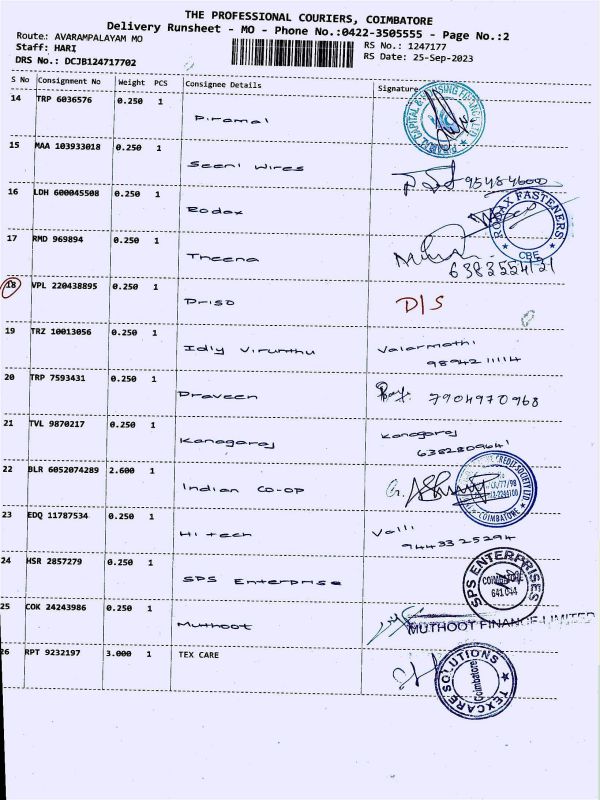 THE PROFESSIONAL COURIERS, COIMBATORE
Delivery Runsheet - MO - Phone No.:0422-3505555 - Page No.:2
Route: AVARAMPALAYAM MO
RS No.: 1247177
Staff: HARI
RS Date: 25-Sep-2023
DRS No.: DCJB124717702
S No Consignment No Weight PCS Consignee Details Signature
14 TRP 6036576 0.250 1 Piramal
15 MAA 103933018 0.250 1 Seeni Wires
16 LDH 600045508 0.250 1 Rodax
RODAX FASTENERS CBE
17 RMD 969894 0.250 1 Theena
6383554121
18 VPL 220438895 0.250 1 Driso D/S
19 TRZ 10013056 0.250 1 Idly Virunthu Valarmathi
9894211114
20 TRP 7593431 0.250 1 Praveen 7904970968
21 TVL 9870217 0.250 1 Kanagaraj Kanagaraj
6382809641
22 BLR 6052074289 2.600 1 Indian CO-OP
COIMBATORE
23 EDQ 11787534 0.250 1 Hi tech Valli
9443325294
24 HSR 2857279 0.250 1 SPS Enterprise
SPS ENTERPRISES COIMBATORE
25 COK 24243986 0.250 1 Muthoot
MUTHOOT FINANCE LIMITED
26 RPT 9232197 3.000 1 TEX CARE
TEXCARE SOLUTIONS Coimbatore